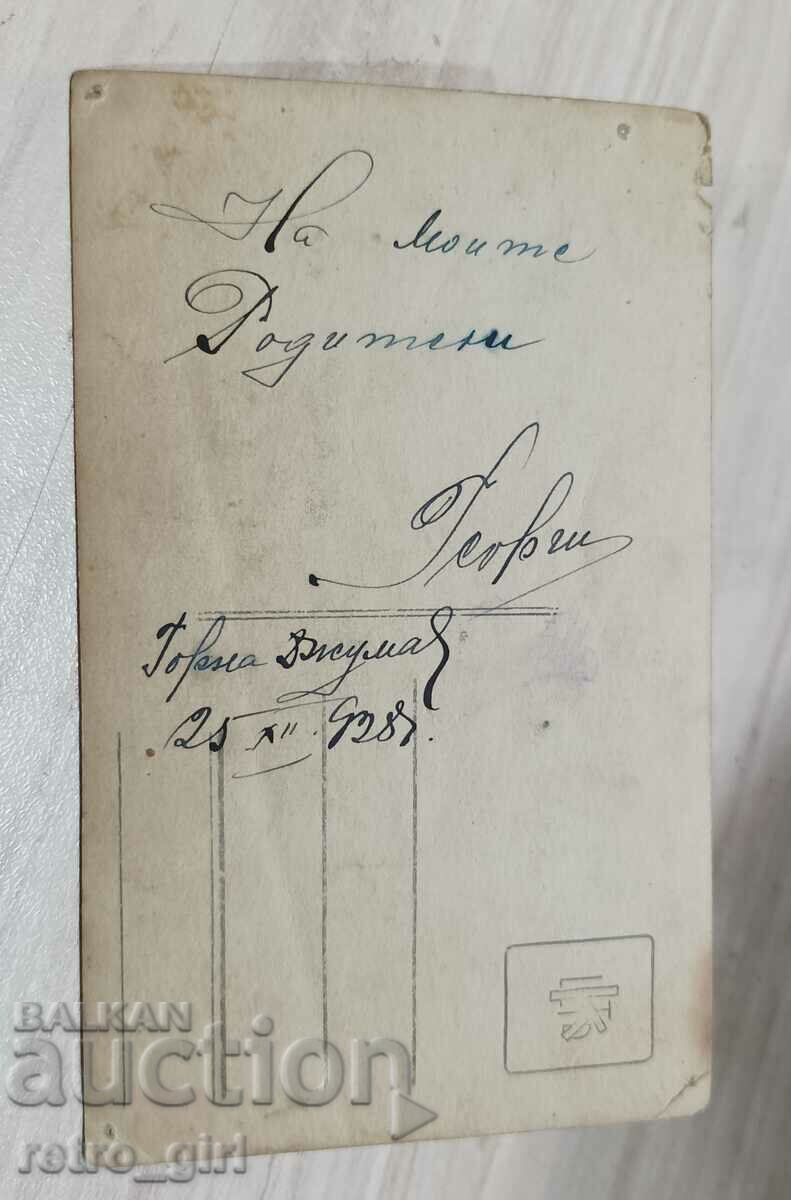 На моите
Родители
Георги
Горна Джумая
25 XII. 928г.
BALKAN
auction
retro_girl